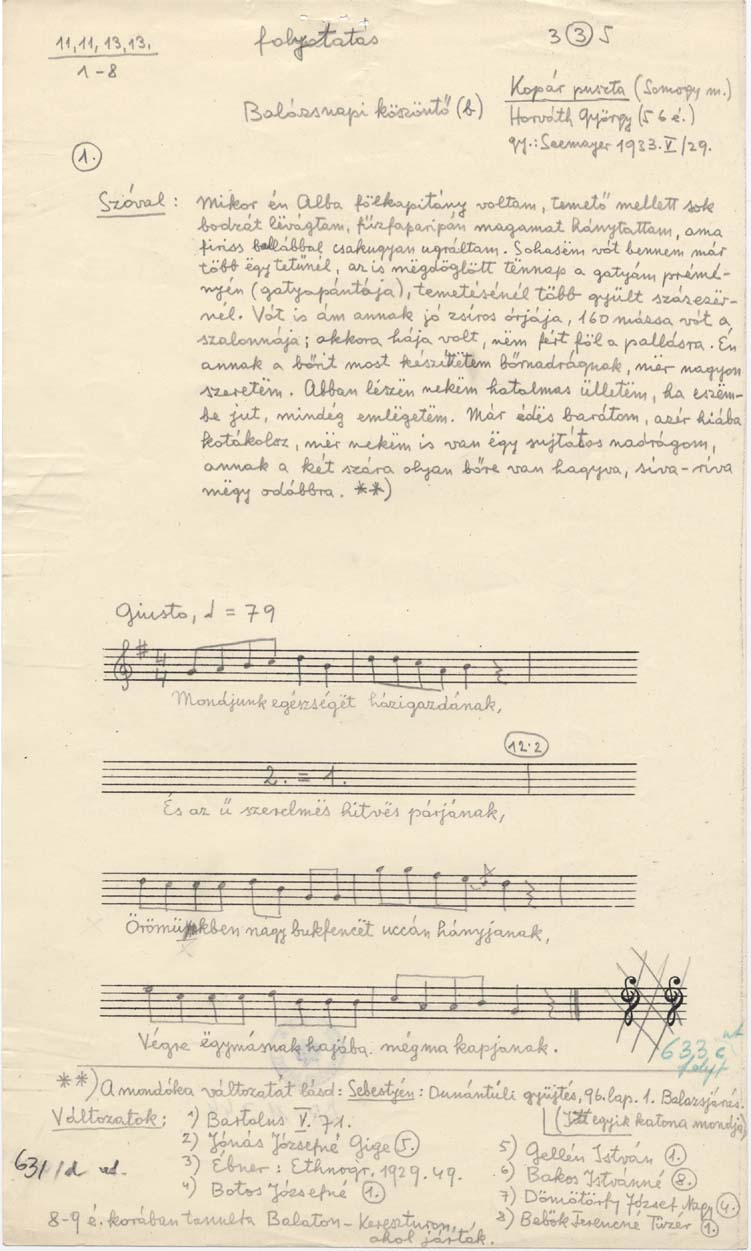 11, 11, 13, 13.
1-8
folytatás
3 ③ 5
Balázsnapi köszöntő (b)
Kopár puszta (Somogy m.)
Horváth György (56 é.)
gy.: Seemayer 1933. V/29.
1.
Szóval: Mikor én Alba fölkapitány voltam, temető mellett sok
bodzát lëvágtam, fűzfaparipán magamat hánytattam, ama
firiss ballábbal csakugyan ugráltam. Sohasëm vót bennem már
több ëgy tetűnél, az is mëgdöglött tënnap a gatyám prémë-
nyén (gatyapántája), temetésénél több gyült százezër-
nél. Vót is ám annak jó zsíros órjája, 160 mázsa vót a
szalonnája; akkora hája volt, nëm fért föl a pallásra. Én
annak a bőrit most készíttetem bőrnadrágnak, mër nagyon
szeretëm. Abban lészën nekëm hatalmas ülletëm, ha eszëm-
be jut, mindég emlëgetëm. Már édës barátom, azér hiába
kotákolsz, mër nekëm is van ëgy sujtátos nadrágom,
annak a két szára olyan bőre van hagyva, síva-ríva
mëgy odábbra. **)
Giusto, = 79
4
4
Mondjunk egészségët házigazdának,
12.2
2. = 1.
És az ű szerelmës hitvës párjának,
Örömükben nagy bukfencët uccán hányjanak,
Végre ëgymásnak hajába mégma kapjanak.
633/c
folyt
**) A mondóka változatát lásd: Sebestyén: Dunántúli gyüjtés, 96. lap. 1. Balázsjárás.
(Itt egyik katona mondja)
Változatok: 1) Bartalus V. 71.
2) Jónás Józsefné Gige 5.
3) Ébner: Ethnogr. 1929. 49.
4) Botos Józsefné 1.
5) Gellén István 1.
6) Bakos Istvánné 8.
7) Dömötörfy József Nagy 4.
8) Babók Ferencné Tüzér 1.
631/d
8-9 é. korában tanulta Balaton-Kereszturon,
ahol jártak.